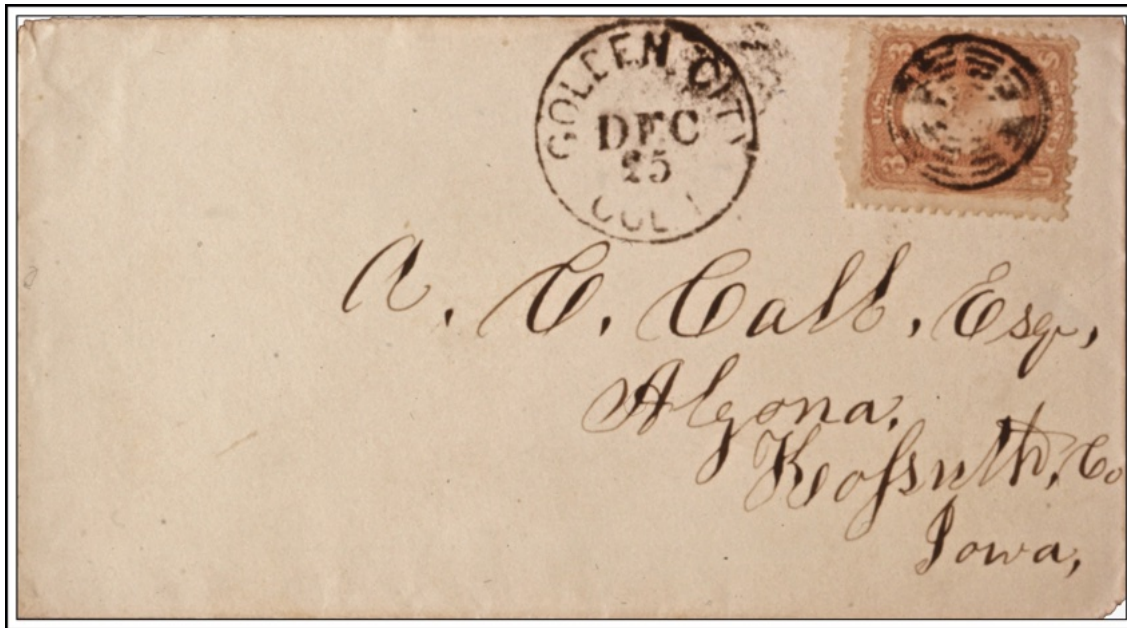 GOLDEN CITY
DEC
25
COL
3 3
U.S.
3 U S
A. C. Call, Esq,
Algona,
Kossuth, Co
Iowa,